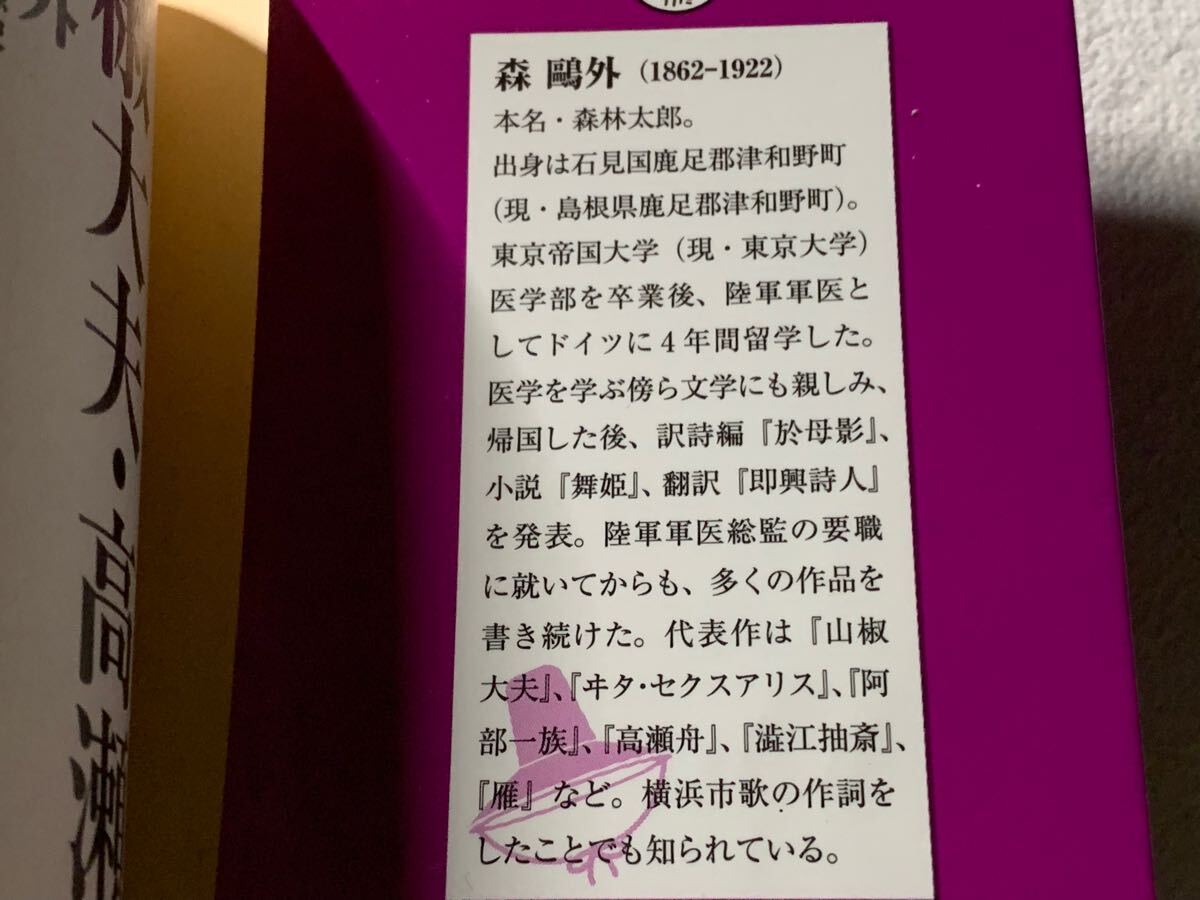 森 鷗外（1862-1922）
本名・森林太郎。
出身は石見国鹿足郡津和野町
（現・島根県鹿足郡津和野町）。
東京帝国大学（現・東京大学）
医学部を卒業後、陸軍軍医と
してドイツに4年間留学した。
医学を学ぶ傍ら文学にも親しみ、
帰国した後、訳詩編『於母影』、
小説『舞姫』、翻訳『即興詩人』
を発表。陸軍軍医総監の要職
に就いてからも、多くの作品を
書き続けた。代表作は『山椒
大夫』、『ヰタ・セクスアリス』、『阿
部一族』、『高瀬舟』、『澁江抽斎』、
『雁』など。横浜市歌の作詞を
したことでも知られている。
椒大夫・高瀬
外